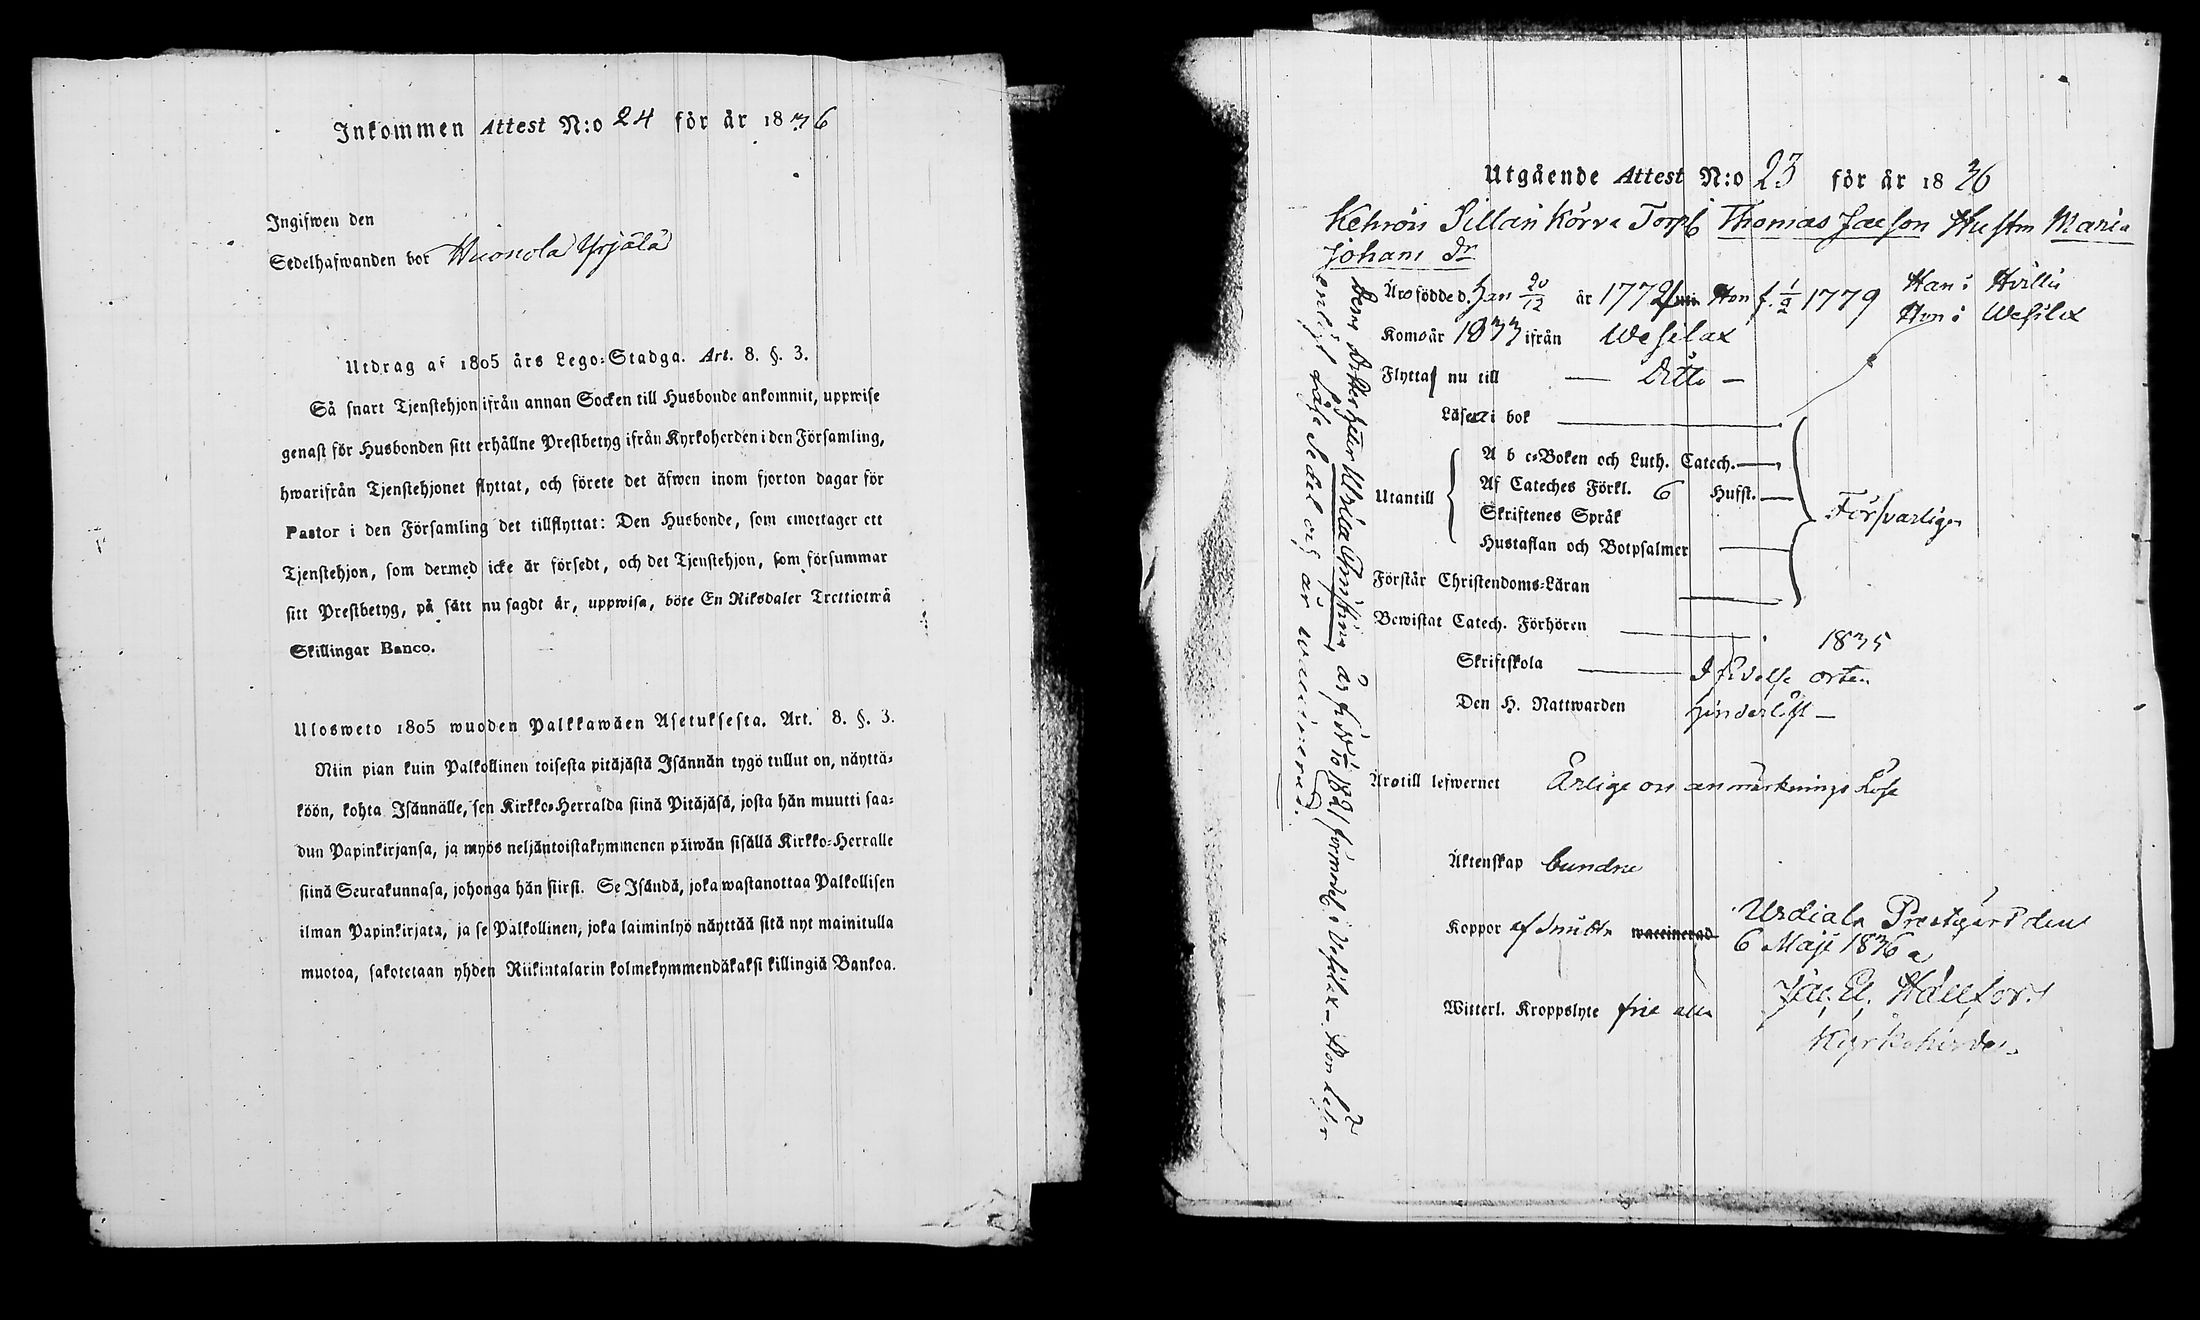 Inkommen Attest N:o 24 för år 1836
Ingifwen den
Sedelhafwanden bor Huonola Yrjälä
Utdrag af 1805 års Lego-Stadga. Art. 8. §. 3.
Så snart Tjenstehjon ifrån annan Socken till Husbonde ankommit, uppwise
genast för Husbonden sitt erhållne Prestbetyg ifrån Kyrkoherden i den Församling,
hwarifrån Tjenstehjonet flyttat, och förete det äfwen inom fjorton dagar för
Pastor i den Församling det tillflyttat: Den Husbonde, som emottager ett
Tjenstehjon, som dermed icke är försedt, och det Tjenstehjon, som försummar
sitt Prestbetyg, på sätt nu sagdt är, uppwisa, böte En Riksdaler Trettiotwå
Skillingar Banco.
Ulosweto 1805 wuoden Palkkawäen Asetuksesta. Art. 8. §. 3.
Niin pian kuin Palkollinen toisesta pitäjästä Isännän tygö tullut on, näyttä-
köön, kohta Isännälle, sen Kirkko-Herralda siinä Pitäjäsä, josta hän muutti saa-
dun Papinkirjansa, ja myös neljäntoistakymmenen päiwän sisällä Kirkko-Herralle
siinä Seurakunnasa, johonga hän siirsi. Se Isändä, joka wastanottaa Palkollisen
ilman Papinkirjata, ja se Palkollinen, joka laiminlyö näyttää sitä nyt mainitulla
muotoa, sakotetaan yhden Riikintalarin kolmekymmendäkaksi killingiä Bankoa.
Utgående Attest N:o 23 för år 1836
Kehrois Sillan Körva Torp Thomas Jacsson Hustrun Maria
Johans Dr
Äro födde d. Han 20/12 år 1772 Hon f. 1/2 1779 Han i Hvittis
Hon i Wesilax
Komo år 1833 ifrån Wesilax
Flyttas nu till — Ditto —
Läser i bok
A b c-Boken och Luth. Catech.
Utantill Af Cateches Förkl. 6 Hufst.
Skriftenes Språk
Hustaflan och Botpsalmer
Försvarligen
Förstår Christendoms-Läran
Bewistat Catech. Förhören 1835
Skriftskola I födelse orten
Den H. Nattwarden Hinderlöst —
Äro till lefwernet Ärlige och anmärknings löse
Äktenskap bundne
Koppor af Smitta waccinerad
Witterl. Kroppslyte frie alla
Urdiala Prestgård den
6 Maji 1836
Jac. El. Hällfors
Kyrkoherde
Deras Dotter Ulrica Christina, är född 1821 i Vesilax. Hon
enligt Låse Sedel och är waccinerad.